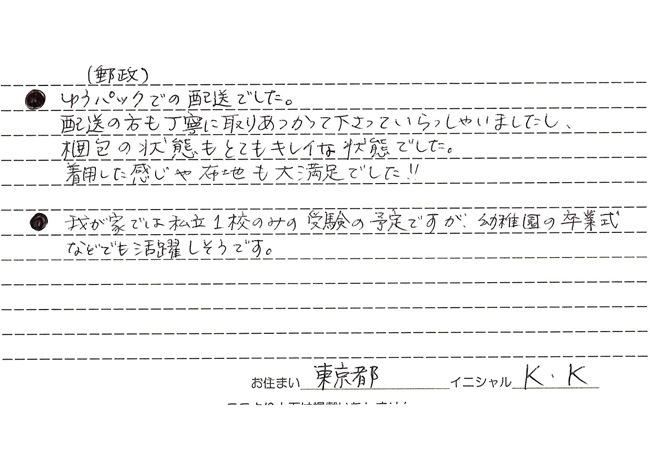 (郵政)
● ゆうパックでの配送でした。
配送の方も丁寧に取りあつかって下さっていらっしゃいましたし、
梱包の状態もとてもキレイな状態でした。
着用した感じや布地も大満足でした!!
● 我が家では私立1校のみの受験の予定ですが、幼稚園の卒業式
などでも活躍しそうです。
お住まい 東京都 イニシャル K.K